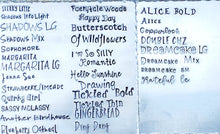 Shadows Into Light
SHADOWS LG
Shadows Mix
SOPHOMORE
MARGARITA
MARGARITA LG
Jenna Sue
STRAWBERRY/LIMEADE
Quirky Girl
SASSY MOLASSY
Another Birdhouse
Blueberry Pie
Fairytale Woods
Happy Day
Butterscotch
Of Wildflowers
I'M SO SILLY
Romantic
Hello Sunshine
Drawing
Tickled Bold
Tickled Thin
GINGERBREAD
Ding Dong
ALICE BOLD
ALICE
Copperfox
DOUBLE CHZ
DREAMCAKE LG
DREAMCAKE MIX
DREAMCAKE SM
Grateful